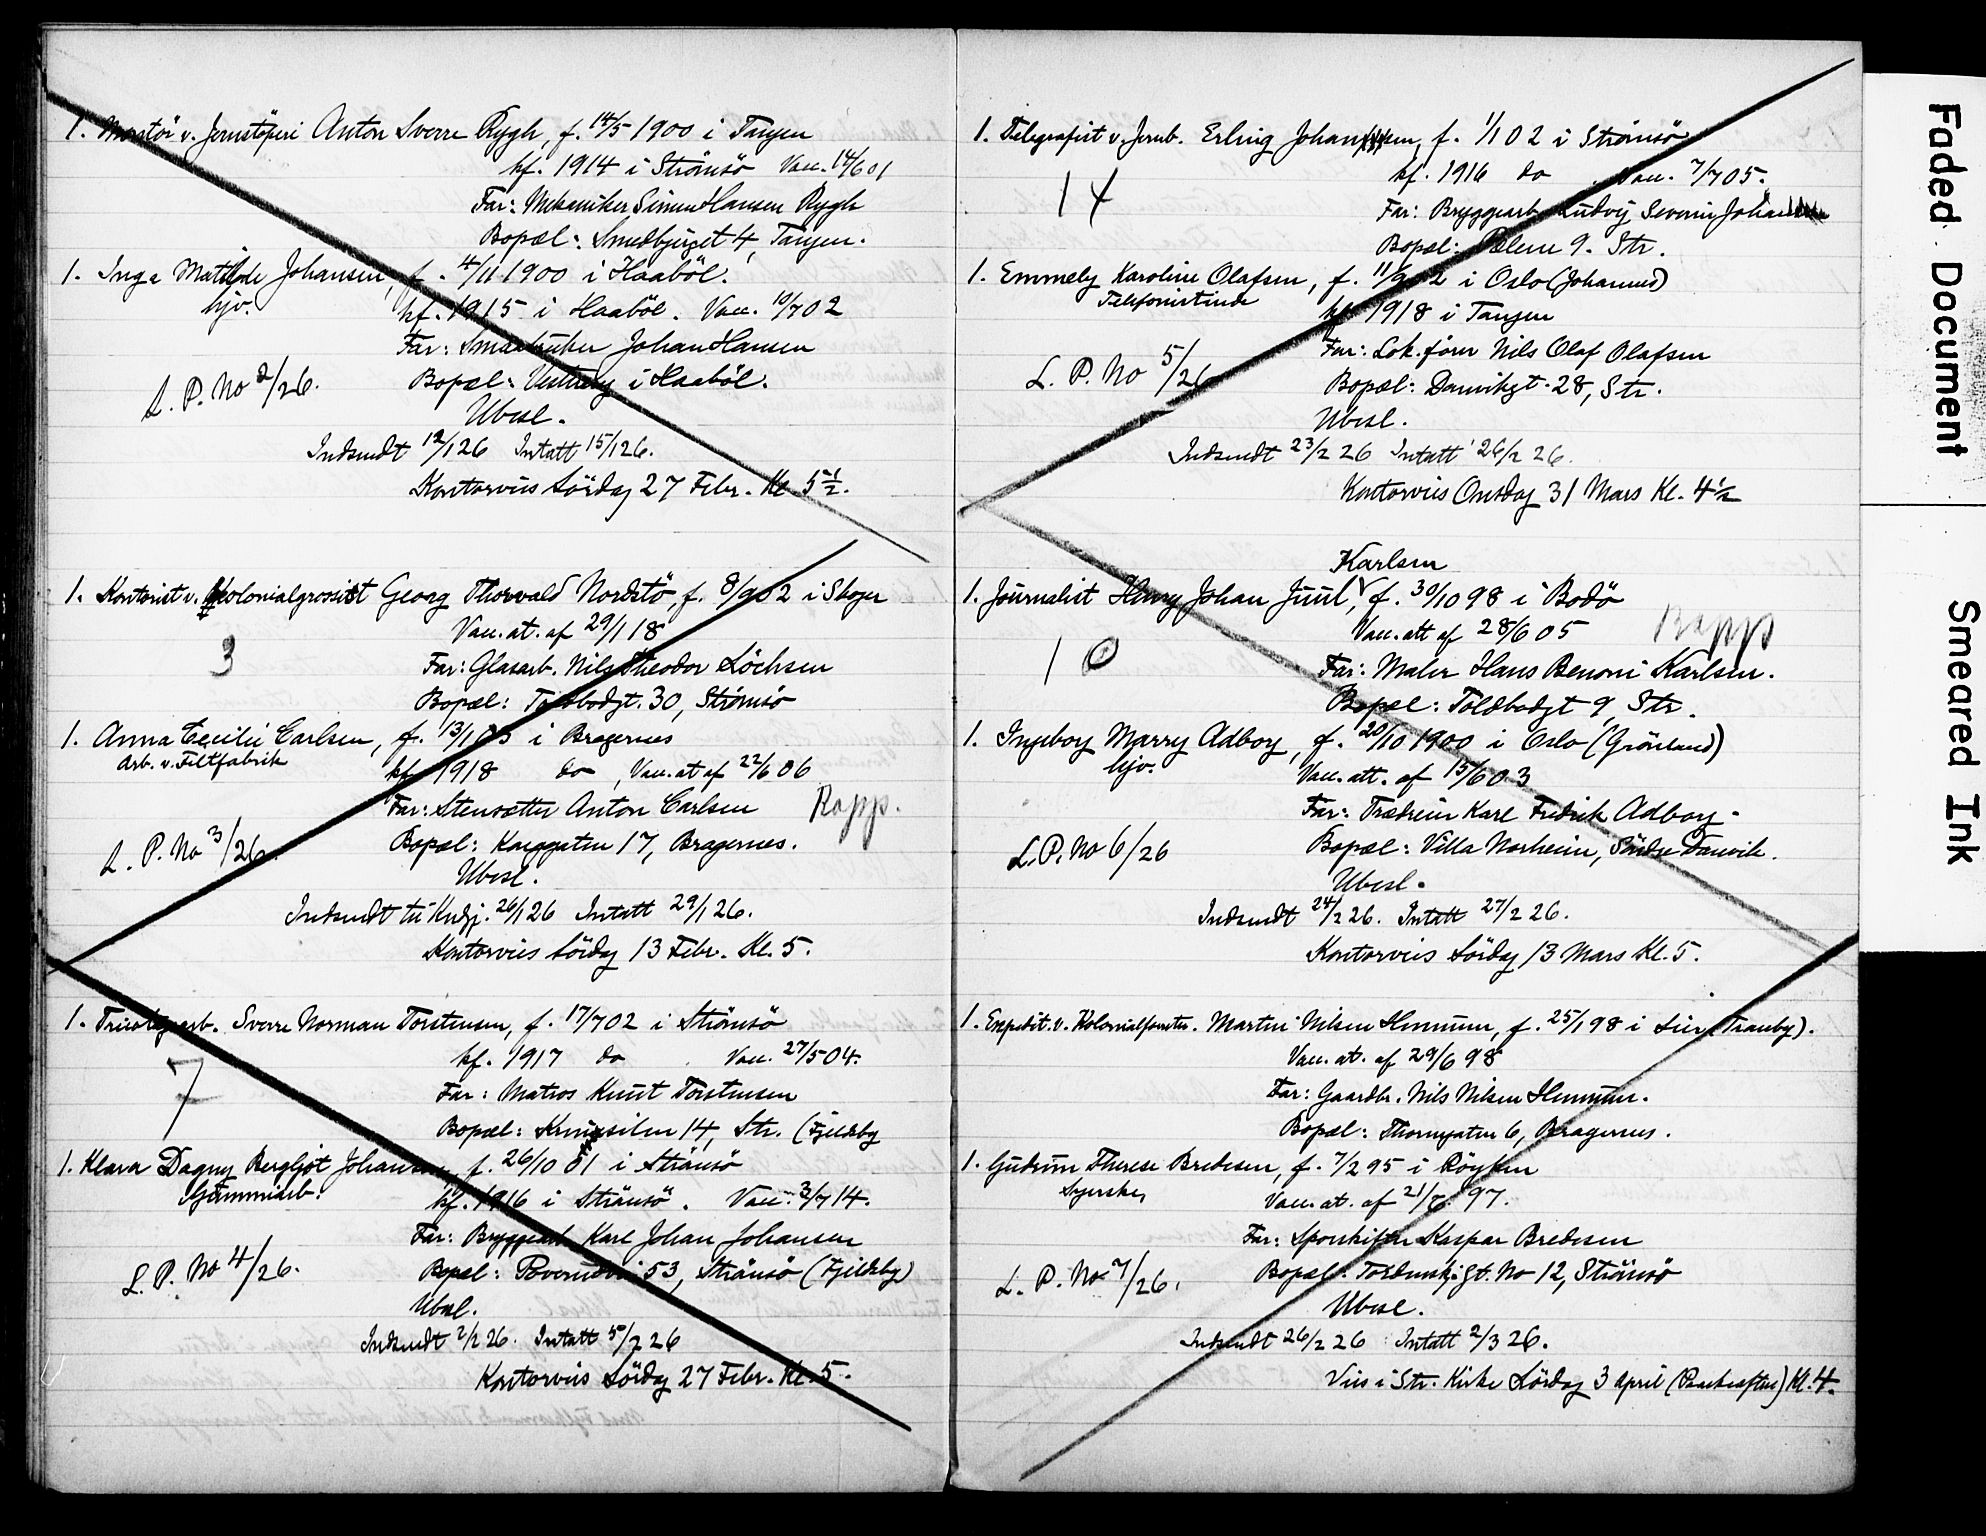 1. Montör v. Jernstöperi Anton Sverre Rygh, f. 14/5 1900 i Tangen
kf. 1914 i Strömsö Vacc. 14/6 01
Far: Mekaniker Simen Hansen Rygh
Bopæl: Smedbjerget 4, Tangen.
1. Inga Mathilde Johansen, f. 4/11 1900 i Haabøl.
hjv.
kf. 1915 i Haaböl. Vacc. 10/7 02
Far: Johan Hansen
L. P. No 2/26.
Bopæl: Vestraby i Haaböl.
Ubesl.
Indsendt 12/1 26 Inttatt 15/1 26.
Kontorvies Lördag 27 Febr. Kl. 5 1/2.
1. Kontorist v. Kolonialgrossist Georg Thorvald Nordstö, f. 8/9 02 i Skoger
Vacc. at. af 29/1 18
3
Far: Glasarb. Nils Theodor Löchsen
Bopæl: Toldbodgt. 30, Strømsö
1. Anna Cecilie Carlsen, f. 13/1 03 i Bragernes
Arb. v. Filtfabrik
kf. 1918 do, Vacc. at af 22/6 06
Far: Stensætter Anton Carlsen Rapp.
L. P. No 3/26.
Bopæl: 17, Bragernes.
Ubesl.
Indsendt til Kndgj. 26/1 26 Inttatt 29/1 26.
Kontorvies Lördag 13 Febr. Kl. 5.
1. Tricotagearb. Sverre Norman Torstensen, f. 17/7 02 i Strömsö
kf. 1917 do Vacc. 27/5 04.
7
Far: Matros Knut Torstensen
Bopæl: 14, Str. (Fjeldby
1. Klara Dagny Bergljot Johansen, f. 26/10 01 i Strömsö
Gummiarb.
kf. 1916 i Strömsö. Vacc. 3/7 14.
Far: Bryggearb. Karl Johan Johansen
L. P. No 4/26.
Bopæl: 53, Strömsö (Fjeldby)
Ubesl.
Indsendt 2/2 26. Inttatt 5/2 26
Kontorvies Lördag 27 Febr. Kl. 5.
1. Telegrafist v. Jernb. Erling Johansen, f. 1/1 02 i Strömsö
kf. 1916 do. Vacc. 7/7 05.
14
Far: Bryggearb. Ludvig Severin Johansen
Bopæl: Pælene 9. Str.
1. Emmely Karoline Olafsen, f. 11/9 02 i Oslo (Johannes)
Telefonistinde
kf. 1918 i Tangen
Far: Lok. fører Nils Olaf Olafsen
L. P. No 5/26
Bopæl: Danvikgt. 28, Str.
Ubesl.
Indsendt 23/2 26 Inttatt 26/2 26.
Kontorvies Onsdag 31 Mars Kl. 4 1/2
Karlsen
1. Journalist Henry Johan Juul, f. 30/10 98 i Bodö
Vacc. att af 28/6 05 Rapp
10
Far: Maler Hans Benoni Karlsen.
Bopæl: Toldbodgt 9, Str.
1. Ingeborg Marry Adborg, f. 20/10 1900 i Oslo (Grönland)
hjv.
Vacc. att. af 15/6 03
Far: Trædreier Karl Fredrik Adborg.
L. P. No 6/26
Bopæl: Villa Norheim, Söndre Danvik.
Ubesl.
Indsendt 24/2 26. Inttatt 27/2 26.
Kontorvies Lördag 13 Mars Kl. 5.
1. Expedit. v. Kolonialforretn. Martin Nilsen Hennum, f. 25/1 98 i Lier (Tranby).
Vacc. at. af 29/6 98
Far: Gaardbr. Nils Nilsen Hennum.
Bopæl: Thornegaten 6, Bragernes.
1. Gudrun Therese Bredesen, f. 7/2 95 i Röyken
Syerske,
Vacc. at. af 21/6 97.
Far: Sporskifter Kaspar Bredesen
L. P. No 7/26.
Bopæl: Tordenskj. Gt. No 12, Strömsö
Ubesl.
Indsendt 26/2 26 Inttatt 2/3 26.
Vies i Str. Kirke Lördag 3 April (Paaskeaften) Kl. 4.
Faded Document
Smeared Ink